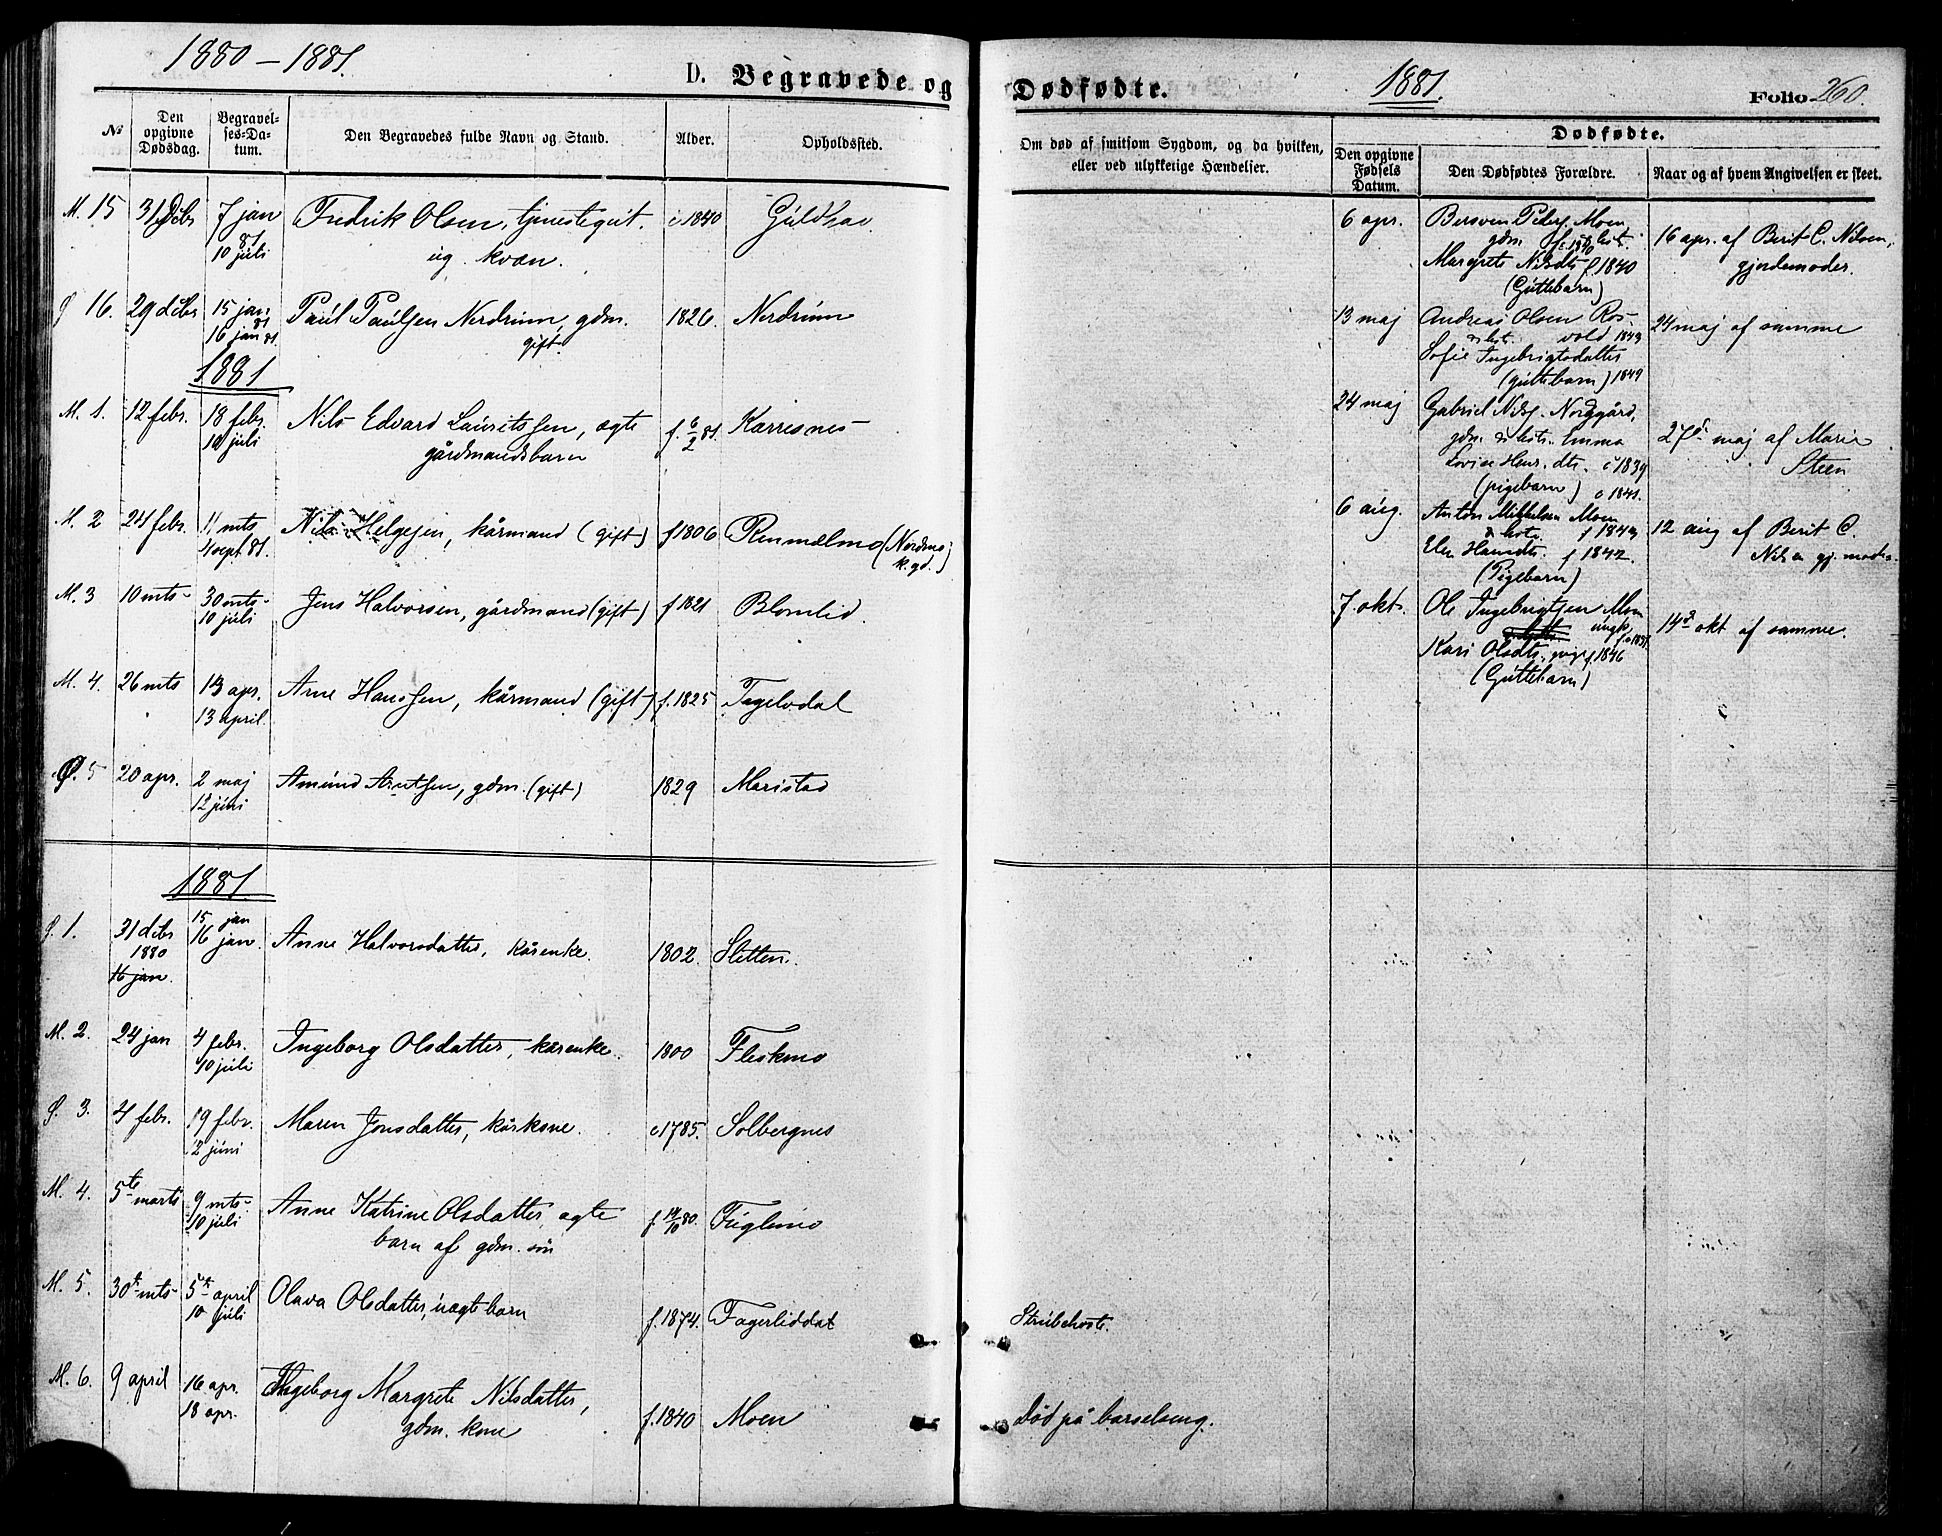 1880 – 1881.
D. Begravede og
№
Den opgivne Dødsdag.
Begravel-ses-Da-tum.
Den Begravedes fulde Navn og Stand.
Alder.
Opholdssted.
M. 15 31 Debr 7 jan Fredrik Olsen, tjenestegut. c 1840
81 10 juli ug. kvæn.
16. 29 debr 15 jan 81 Paul Paulsen Nerdrum, gdm. 1826. Nerdrum
16 jan 81. gift.
1881
M. 1. 12 febr. 18 febr. Nils Edvard Lauritssen, ægte f. 6/2 81. Karresnes
10 juli gårdmandsbarn
M. 2 24 febr. 11 mts Nils Helgesen, kårmand (gift) f 1806 Rennelmo (Nordmo
sept. 81. k. gd.)
M. 3 10 mts 30 mts Jens Halvorsen, gårdmand (gift) f 1821 Blomlid.
10 juli
M. 4. 26 mts 13 apr. Arne Hanssen, kårmand (gift) f. 1825
13 april.
5 20 apr. 2 maj Amund Arntsen, gdm. (gift) 1829 Maristad
12 juni
1881.
S. 1. 31 debr 15 jan
1880 16 jan. Anne Halvorsdatter, kårenke. 1802. Sletten.
16 jan.
M. 2. 24 jan 4 febr. Ingeborg Olsdatter, kårenke. 1800 Fleskmo
10 juli
S. 3. 4 febr. 19 febr. Maren Jonsdatter, kårkone. c 1785. Solbergnes
12 juni
M. 4. 5te marts 9 mts Anne Katrine Olsdatter, ægte f. 14/10 80. Fuglemo
10 juli barn af gdm. søn
M. 5. 30te mts 5te april Olava Olsdatter, uægte barn f. 1874. Fagerliddal
10 juli
M. 6. 9 april 16 apr. Ingeborg Margrete Nilsdatter, f. 1840 Moen
18 apr. gdm. kone
Dødfødte.
1881.
Folio 260.
Om død af smitsom Sygdom, og da hvilken,
eller ved ulykkelige Hændelser.
Dødfødte.
Den opgivne Fødsels Datum.
Den Dødfødtes Forældre.
Naar og af hvem Angivelsen er skeet.
6 apr. Bersven Peders. Moen
gdm.
Margrete Nilsdtr f 1840
(Guttebarn)
16 apr. af Berit C. Nilsen,
gjordemoder.
13 maj Andreas Olsen Ros-
& hstr. vold 1849
Sofie Ingebrigtsdatter
(guttebarn) 1849
24 maj af samme
24 maj Gabriel Nils. Nordgård,
gdm. & hstr. Emma
Lovise Henr.dtr. c 1839
(pigebarn) c 1841.
27de maj af Marie
Steen
6 aug. Anton Mikkelsen Moen
& hstr. f 1843
Elen Hansdtr. f 1842
(Pigebarn)
12 aug af Berit C.
Nilsen gj. moder
7. okt. Ole Ingebrigtsen Moen
ungk.
Kari Olsdtr. pige f. 1846
(Guttebarn)
14de okt af samme.
Strubehoste.
Død på barselseng.